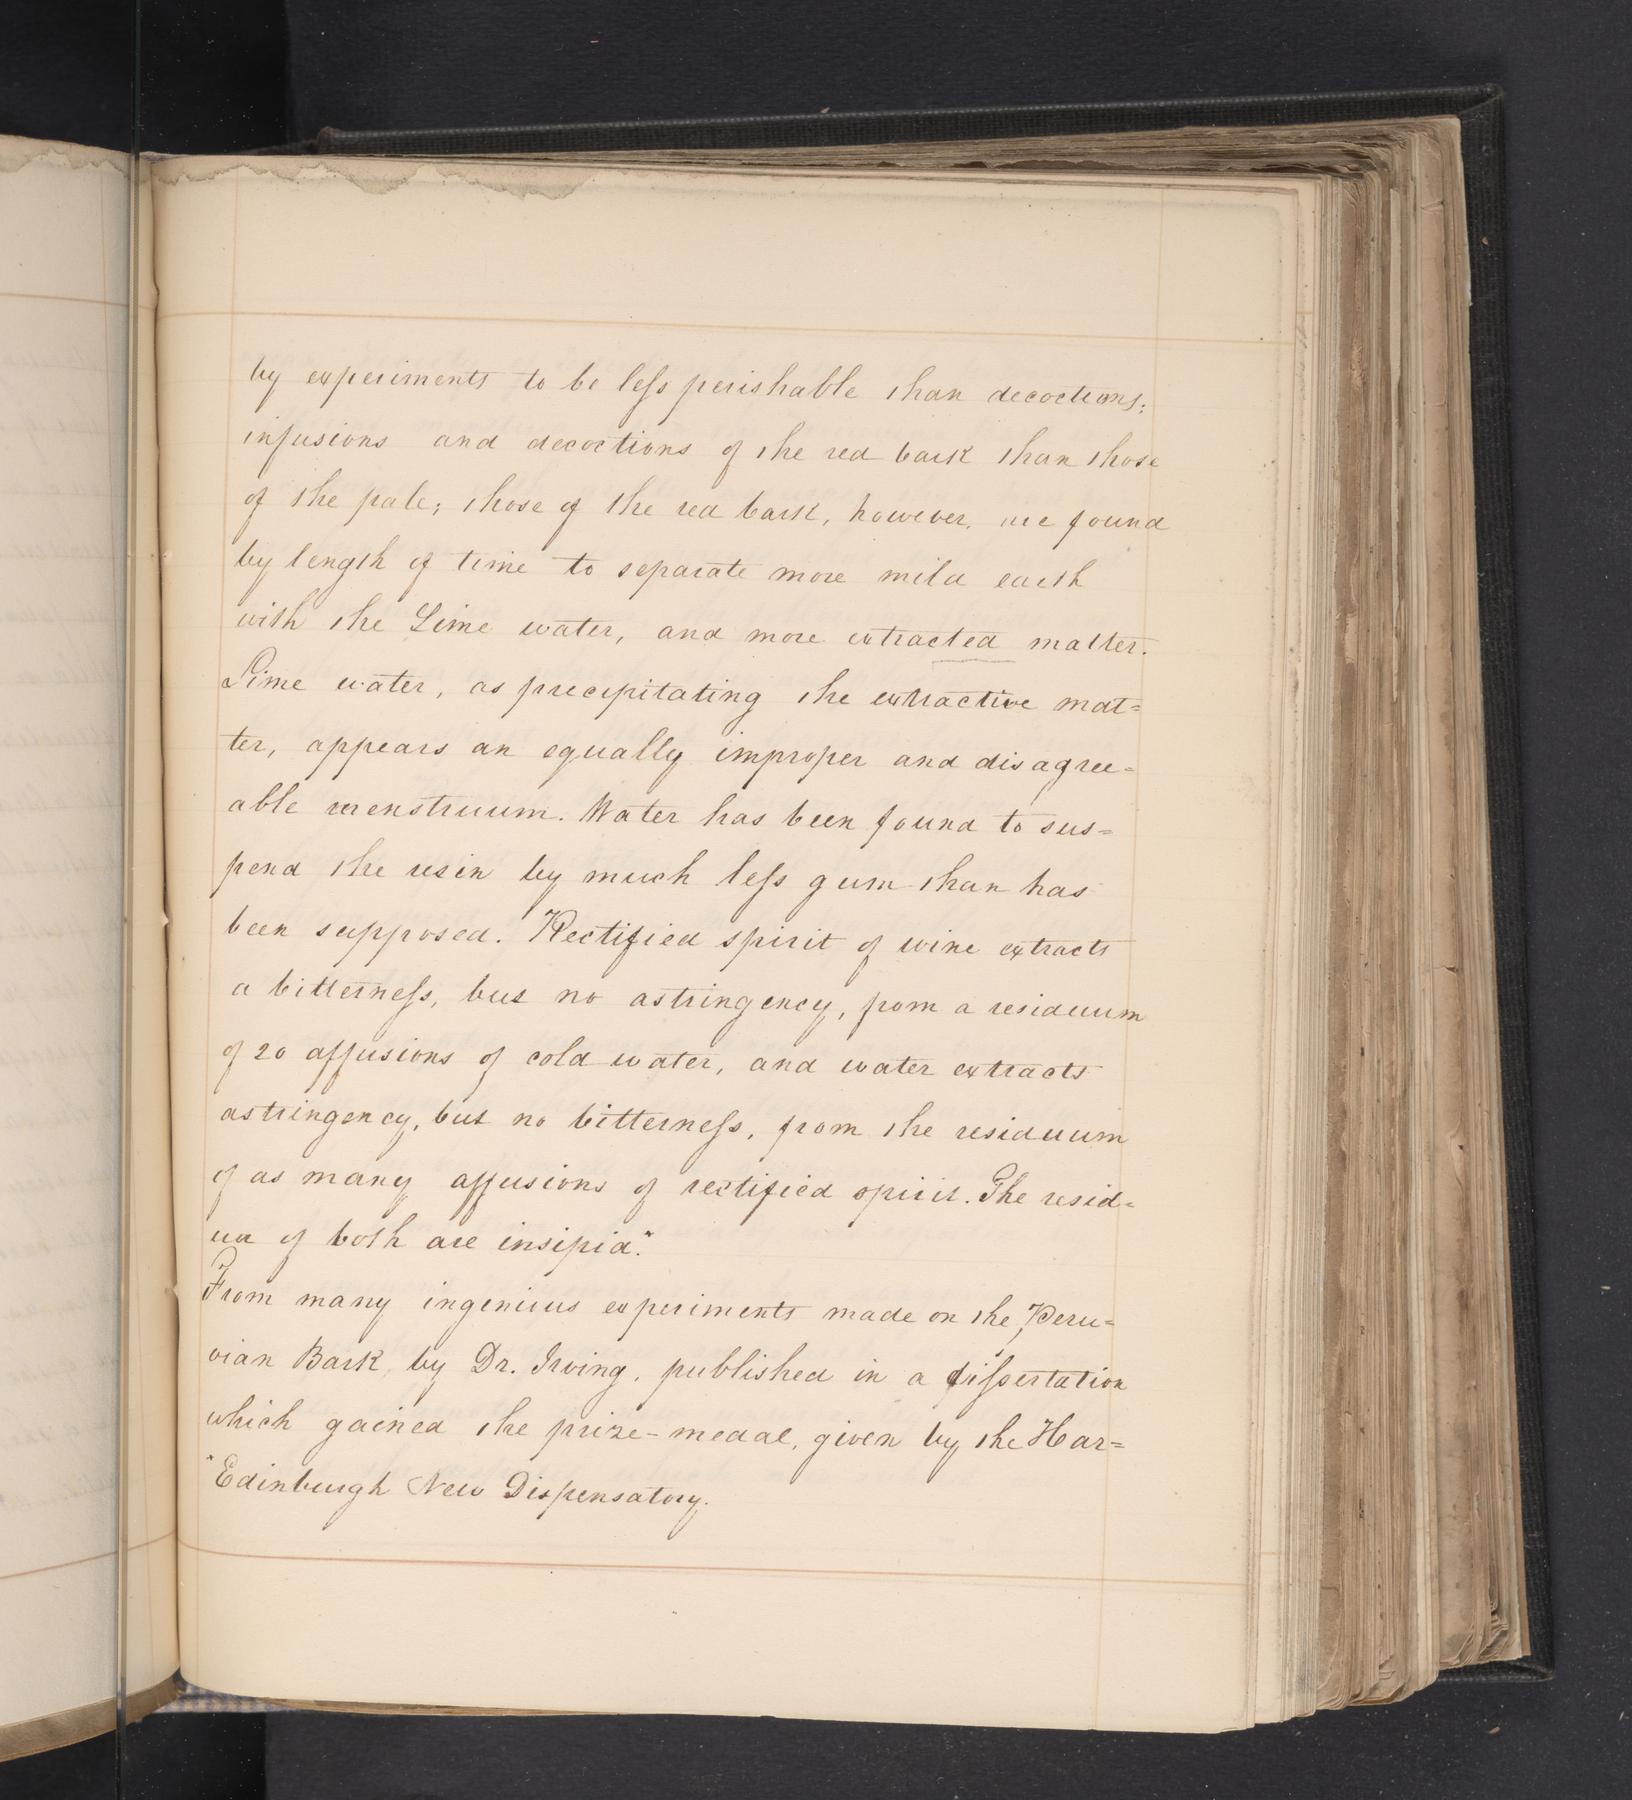 by experiments to be less perishable than decoctions;
infusions and decoctions of the red bark than those
of the pale; those of the red bark, however, are found
by length of time to separate more mild earth
with the Lime water, and more extracted matter.
Lime water, as precipitating the extractive mat=
ter, appears an equally improper and disagree=
able menstruum. Water has been found to sus=
pend the resin by much less gum than has
been supposed. Rectified spirit of wine extracts
a bitterness, but no astringency, from a residuum
of 20 affusions of cold water, and water extracts
astringency, but no bitterness, from the residuum
of as many affusions of rectified spirit. The resid=
ua of both are insipid.*
From many ingenious experiments made on the Peru=
vian Bark by Dr. Irving, published in a dissertation
which gained the prize-medal, given by the Har=
*Edinburgh New Dispensatory.